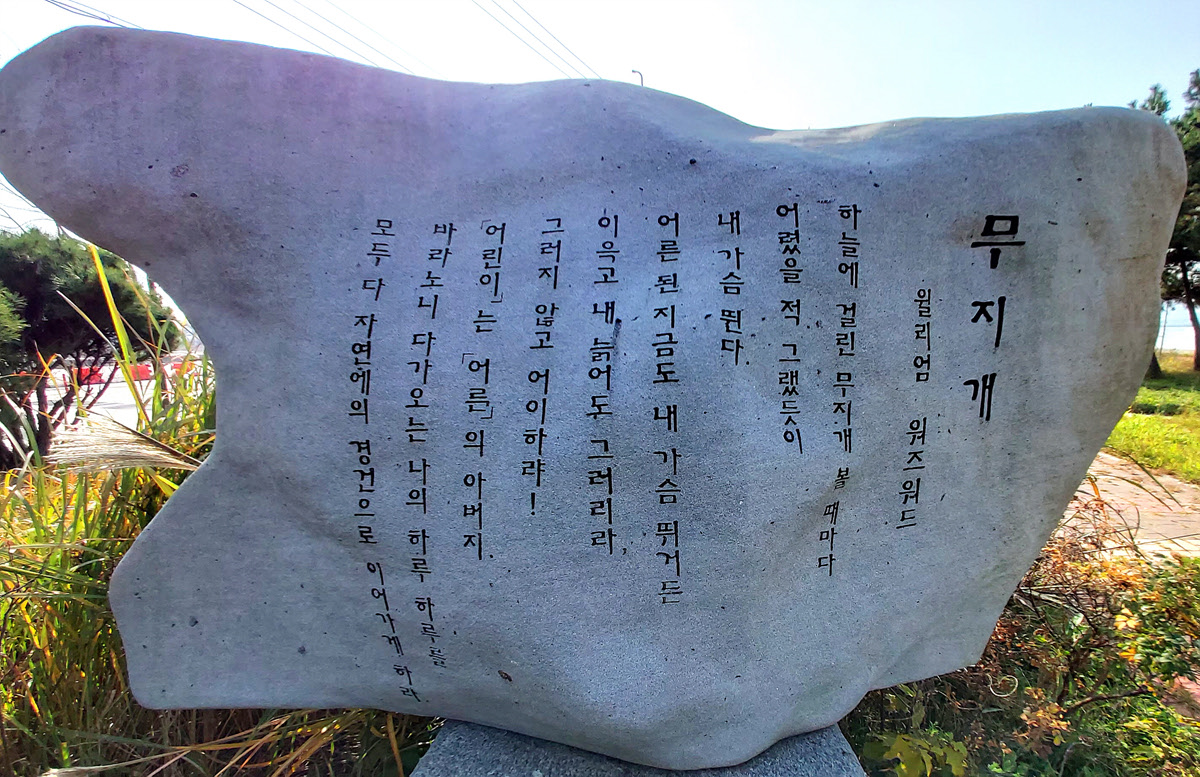 무지개
윌리엄 워즈워드
하늘에 걸린 무지개 볼 때마다
어렸을 적 그랬듯이
내 가슴 뛴다.
어른 된 지금도 내 가슴 뛰거든
이윽고 내 늙어도 그러리라,
그러지 않고 어이하랴!
「어린이」는 「어른」의 아버지.
바라노니 다가오는 나의 하루 하루를
모두 다 자연에의 경건으로 이어가게 하라